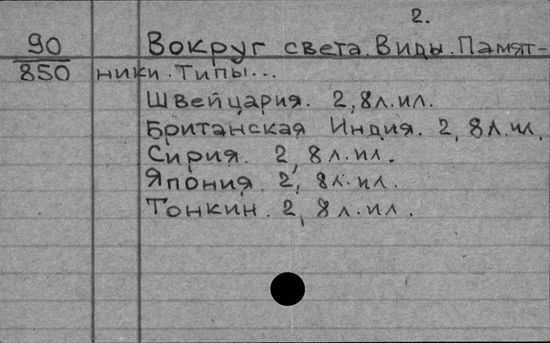 2.
90 Вокруг света. Виды. Памят-
850 ники. Типы...
Швейцария. 2, 8 л. ил.
Британская Индия. 2, 8 л. ил.
Сирия. 2, 8 л. ил.
Япония. 2, 8 л. ил.
Тонкин. 2, 8 л. ил.